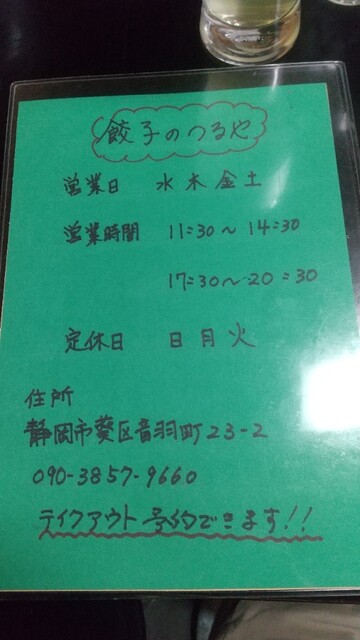 餃子のつるや
営業日 水木金土
営業時間 11:30~14:30
17:30~20:30
定休日 日月火
住所
静岡市葵区音羽町23-2
090-3857-9660
テイクアウト予約できます!!